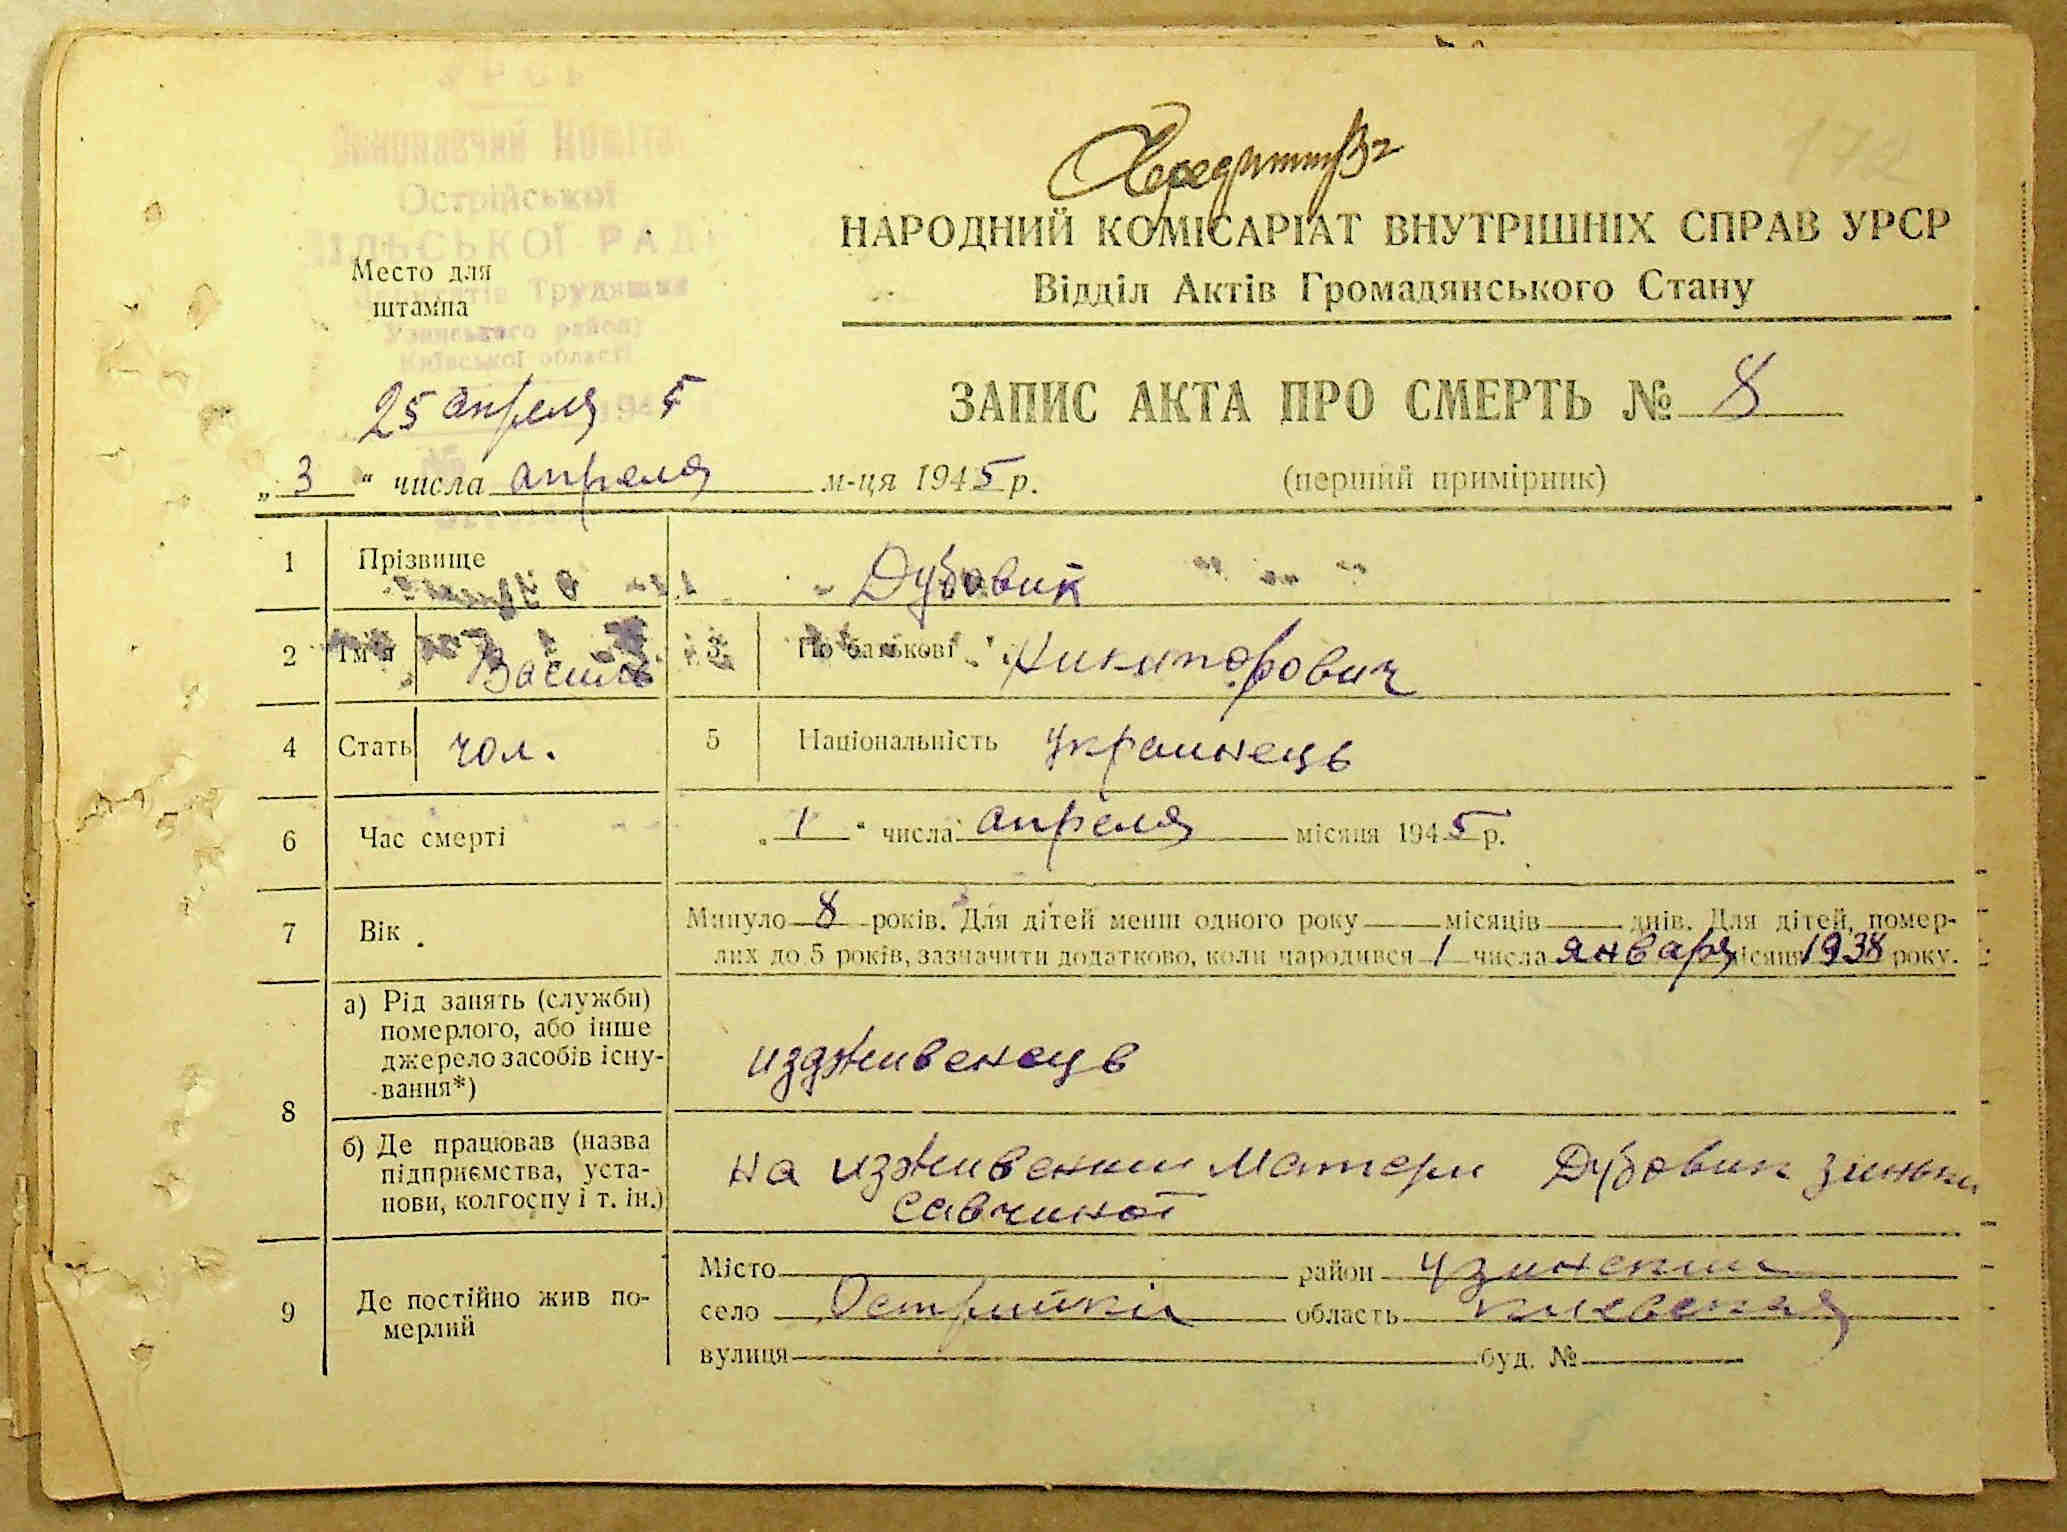 172
УРСР
Виконавчий Коміте
Острійської
СІЛЬСЬКОЇ РАДИ
Депутатів Трудящих
Узинського району
Київської області
Место для
штампа
25 апреля 194 5
НАРОДНИЙ КОМІСАРІАТ ВНУТРІШНІХ СПРАВ УРСР
Відділ Актів Громадянського Стану
ЗАПИС АКТА ПРО СМЕРТЬ № 8
„ 3 “ числа апреля м-ця 1945 р. (перший примірник)
1 Прізвище Дубовик
2 Ім'я Василь 3 По батькові Никифорович
4 Стать чол. 5 Національність украинець
6 Час смерті „ 1 “ числа апреля місяця 1945 р.
7 Вік Минуло 8 років. Для дітей менш одного року місяців днів. Для дітей, помер-
лих до 5 років, зазначити додатково, коли народився 1 числа января місяця 1938 року.
8 а) Рід занять (служби)
померлого, або інше
джерело засобів існу-
вання*)
издживенець
б) Де працював (назва
підприємства, уста-
нови, колгоспу і т. ін.)
на изживении матери Дубовик Зиньки
Савчиної
9 Де постійно жив по-
мерлий
Місто район Узинский
село Острийки область Киевская
вулиця буд. №